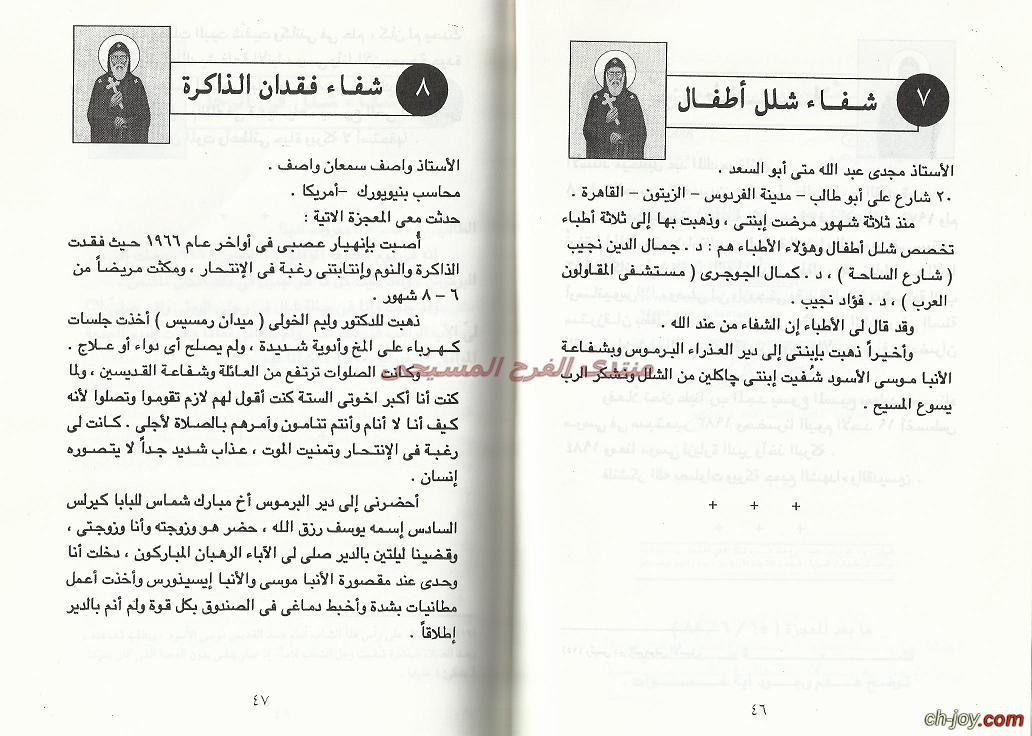 ٧
شفاء شلل أطفال
الأستاذ مجدى عبد الله متى أبو السعد .
٢٠ شارع على أبو طالب – مدينة الفردوس – الزيتون – القاهرة .
منذ ثلاثة شهور مرضت إبنتى ، وذهبت بها إلى ثلاثة أطباء
تخصص شلل أطفال وهؤلاء الأطباء هم : د . جمال الدين نجيب
( شارع الساحة ) ، د . كمال الجوجرى ( مستشفى المقاولون
العرب ) ، د . فؤاد نجيب .
وقد قال لى الأطباء إن الشفاء من عند الله .
وأخيراً ذهبت بإبنتى إلى دير العذراء البرموس وبشفاعة
الأنبا موسى الأسود شُفيت إبنتى چاكلين من الشلل ونشكر الرب
يسوع المسيح .
+ + +
٤٦
٨
شفاء فقدان الذاكرة
الأستاذ واصف سمعان واصف .
محاسب بنيويورك –أمريكا .
حدثت معى المعجزة الاتية :
أُصبت بإنهيار عصبى فى أواخر عام ١٩٦٦ حيث فقدت
الذاكرة والنوم وإنتابتنى رغبة فى الإنتحار ، ومكثت مريضاً من
٦ – ٨ شهور .
ذهبت للدكتور وليم الخولى ( ميدان رمسيس ) أخذت جلسات
كهرباء على المخ وأدوية شديدة ، ولم يصلح أى دواء أو علاج .
وكانت الصلوات ترتفع من العائلة وشفاعة القديسين ، ولما
كنت أنا أكبر اخوتى الستة كنت أقول لهم لازم تقوموا وتصلوا لأنه
كيف أنا لا أنام وأنتم تنامون وآمرهم بالصلاة لأجلى . كانت لى
رغبة فى الإنتحار وتمنيت الموت ، عذاب شديد جداً لا يتصوره
إنسان .
أحضرنى إلى دير البرموس أخ مبارك شماس للبابا كيرلس
السادس إسمه يوسف رزق الله ، حضر هو وزوجته وأنا وزوجتى ،
وقضينا ليلتين بالدير صلى لى الآباء الرهبان المباركون ، دخلت أنا
وحدى عند مقصورة الأنبا موسى والأنبا إيسينورس وأخذت أعمل
مطانيات بشدة وأخبط دماغى فى الصندوق بكل قوة ولم أنم بالدير
إطلاقاً .
٤٧
منتدى الفرح المسيحى
ch-joy.com